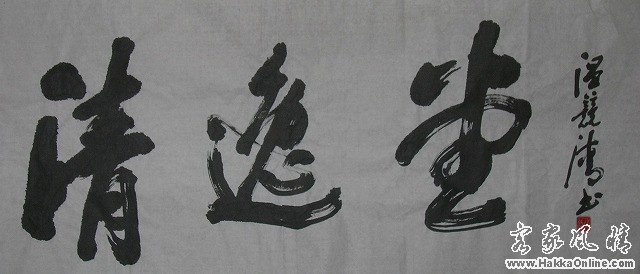 清逸堂
温競书
客家風情
www.HakkaOnline.com